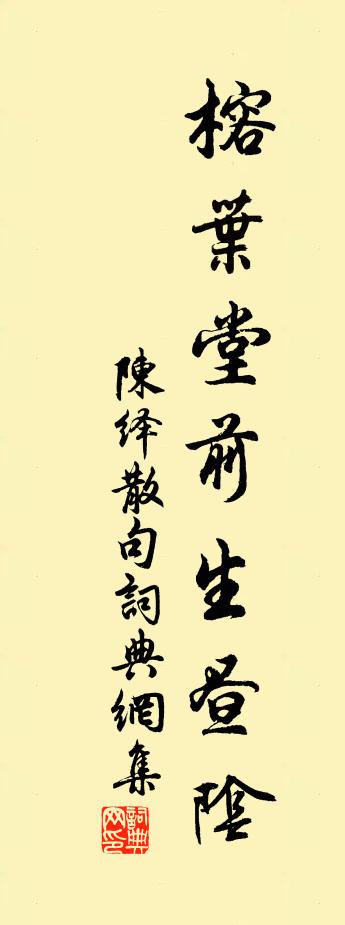 榕葉堂前生昼陰
陳绎散句詞典網集
詞典网印